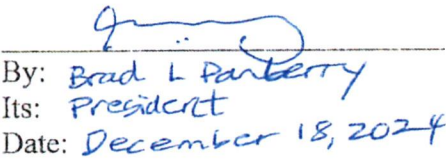 By: Brad L Panberry
Its: President
Date: December 18, 2024